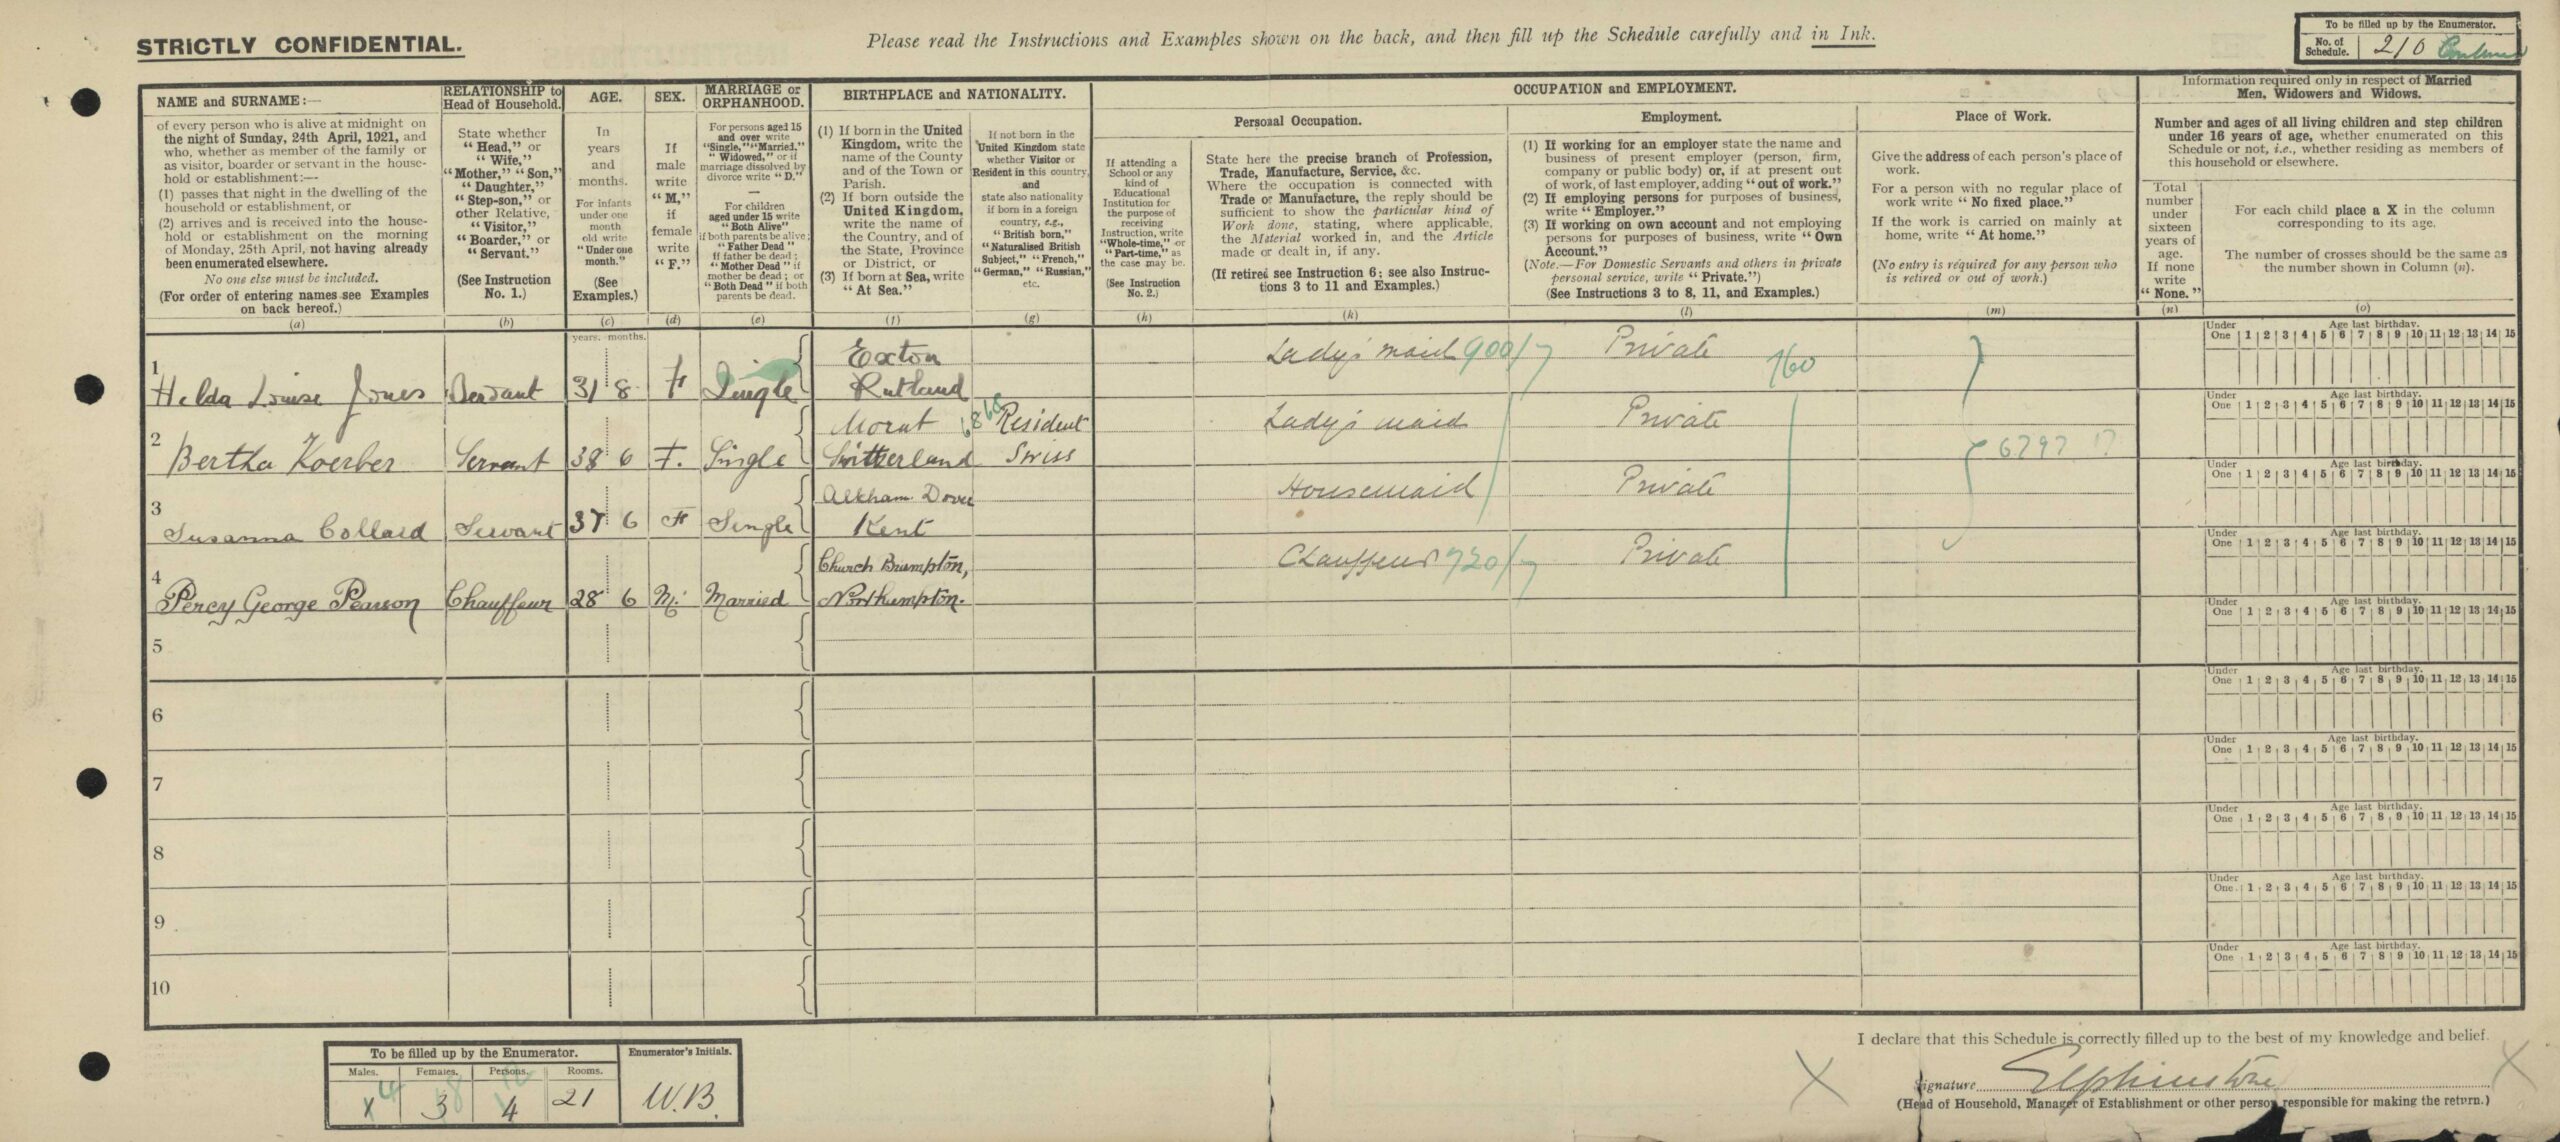 STRICTLY CONFIDENTIAL.
Please read the Instructions and Examples shown on the back, and then fill up the Schedule carefully and in Ink.
To be filled up by the Enumerator.
No. of Schedule. 210
NAME and SURNAME:—
of every person who is alive at midnight on
the night of Sunday, 24th April, 1921, and
who, whether as member of the family or
as visitor, boarder or servant in the house-
hold or establishment:—
(1) passes that night in the dwelling of the
household or establishment, or
(2) arrives and is received into the house-
hold or establishment on the morning
of Monday, 25th April, not having already
been enumerated elsewhere.
No one else must be included.
(For order of entering names see Examples
on back hereof.)
(a)
RELATIONSHIP to
Head of Household.
State whether
"Head," or
"Wife,"
"Mother," "Son,"
"Daughter,"
"Step-son," or
other Relative,
"Visitor,"
"Boarder," or
"Servant."
(See Instruction
No. 1.)
(b)
AGE.
In
years
and
months.
For infants
under one
month
old write
"Under one
month."
(See
Examples.)
(c)
SEX.
If
male
write
"M,"
if
female
write
"F."
(d)
MARRIAGE or
ORPHANHOOD.
For persons aged 15
and over write
"Single," "Married,"
"Widowed," or if
marriage dissolved by
divorce write "D."
—
For children
aged under 15 write
"Both Alive"
if both parents be alive;
"Father Dead"
if father be dead;
"Mother Dead" if
mother be dead; or
"Both Dead" if both
parents be dead.
(e)
BIRTHPLACE and NATIONALITY.
(1) If born in the United
Kingdom, write the
name of the County
and of the Town or
Parish.
(2) If born outside the
United Kingdom,
write the name of
the Country, and of
the State, Province
or District, or
(3) If born at Sea, write
"At Sea."
(f)
If not born in the
United Kingdom state
whether Visitor or
Resident in this country,
and
state also nationality
if born in a foreign
country, e.g.,
"British born,"
"Naturalised British
Subject," "French,"
"German," "Russian,"
etc.
(g)
OCCUPATION and EMPLOYMENT.
Personal Occupation.
If attending a
School or any
kind of
Educational
Institution for
the purpose of
receiving
Instruction, write
"Whole-time," or
"Part-time," as
the case may be.
(See Instruction
No. 2.)
(h)
State here the precise branch of Profession,
Trade, Manufacture, Service, &c.
Where the occupation is connected with
Trade or Manufacture, the reply should be
sufficient to show the particular kind of
Work done, stating, where applicable,
the Material worked in, and the Article
made or dealt in, if any.
(If retired see Instruction 6; see also Instruc-
tions 3 to 11 and Examples.)
(k)
Employment.
(1) If working for an employer state the name and
business of present employer (person, firm,
company or public body) or, if at present out
of work, of last employer, adding "out of work."
(2) If employing persons for purposes of business,
write "Employer."
(3) If working on own account and not employing
persons for purposes of business, write "Own
Account."
(Note.—For Domestic Servants and others in private
personal service, write "Private.")
(See Instructions 3 to 8, 11, and Examples.)
(l)
Place of Work.
Give the address of each person's place of
work.
For a person with no regular place of
work write "No fixed place."
If the work is carried on mainly at
home, write "At home."
(No entry is required for any person who
is retired or out of work.)
(m)
Information required only in respect of Married
Men, Widowers and Widows.
Number and ages of all living children and step children
under 16 years of age, whether enumerated on this
Schedule or not, i.e., whether residing as members of
this household or elsewhere.
Total
number
under
sixteen
years of
age.
If none
write
"None."
(n)
For each child place a X in the column
corresponding to its age.
The number of crosses should be the same as
the number shown in Column (n).
(o)
years. months.
Under One Age last birthday. 1 2 3 4 5 6 7 8 9 10 11 12 13 14 15
1 Hilda Louise Jones Servant 31 8 F Single Exton Rutland Lady's maid 900/7 Private 760
Under One Age last birthday. 1 2 3 4 5 6 7 8 9 10 11 12 13 14 15
2 Bertha Koerber Servant 38 6 F. Single Morat Switzerland Resident Swiss Lady's maid Private 6797
Under One Age last birthday. 1 2 3 4 5 6 7 8 9 10 11 12 13 14 15
3 Susanna Collard Servant 37 6 F Single Alkham Dover Kent Housemaid Private
Under One Age last birthday. 1 2 3 4 5 6 7 8 9 10 11 12 13 14 15
4 Percy George Pearson Chauffeur 28 6 M. Married Church Brampton, Northampton. Chauffeur 720/7 Private
Under One Age last birthday. 1 2 3 4 5 6 7 8 9 10 11 12 13 14 15
5
Under One Age last birthday. 1 2 3 4 5 6 7 8 9 10 11 12 13 14 15
6
Under One Age last birthday. 1 2 3 4 5 6 7 8 9 10 11 12 13 14 15
7
Under One Age last birthday. 1 2 3 4 5 6 7 8 9 10 11 12 13 14 15
8
Under One Age last birthday. 1 2 3 4 5 6 7 8 9 10 11 12 13 14 15
9
Under One Age last birthday. 1 2 3 4 5 6 7 8 9 10 11 12 13 14 15
10
To be filled up by the Enumerator.
Males. Females. Persons. Rooms.
3 4 21
Enumerator's Initials.
W.B.
I declare that this Schedule is correctly filled up to the best of my knowledge and belief.
Signature Elphinstone
(Head of Household, Manager of Establishment or other person responsible for making the return.)